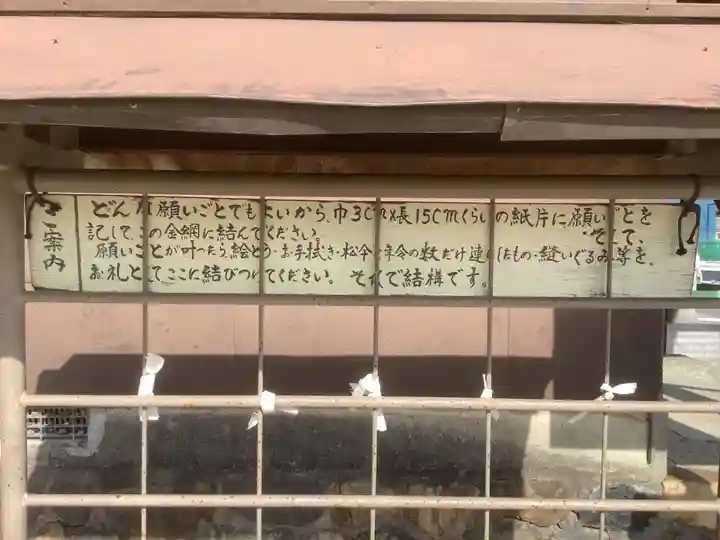 ご案内
どんな願いごとでもよいから、巾3cm×長15cmくらいの紙片に願いごとを
記して、この金網に結んでください。 そして、
願いごとが叶ったら、絵とう・お手拭き・松傘を年令の数だけ連ねたもの・縫いぐるみ等を、
お礼としてここに結びつけてください。それで結構です。